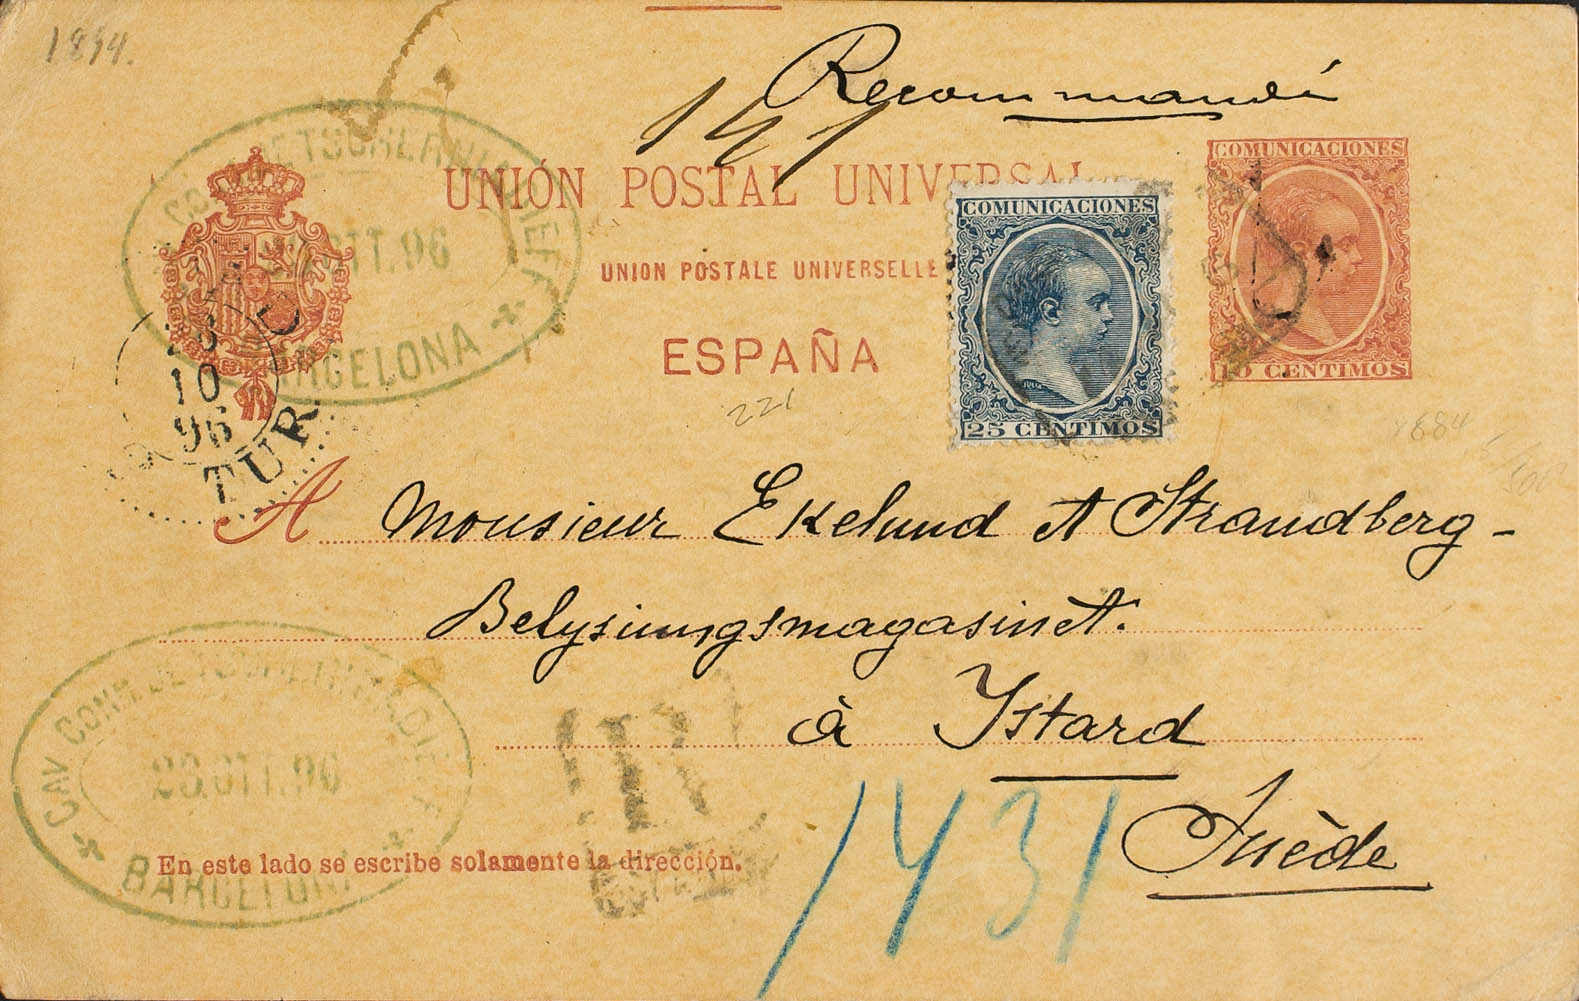 1894.
Recommandé
141
UNIÓN POSTAL UNIVERSAL
COMUNICACIONES
10 CENTIMOS
COMUNICACIONES
25 CENTIMOS
UNION POSTALE UNIVERSELLE
ESPAÑA
OTT.96
BARCELONA
10
96
TUR
221
1884
A Monsieur Ekelund et Strandberg-
Belysningsmagasinet.
à Ystard
Suède
1431
CAV. CONR. DE
28.OTT.96
BARCELONA
En este lado se escribe solamente la dirección.